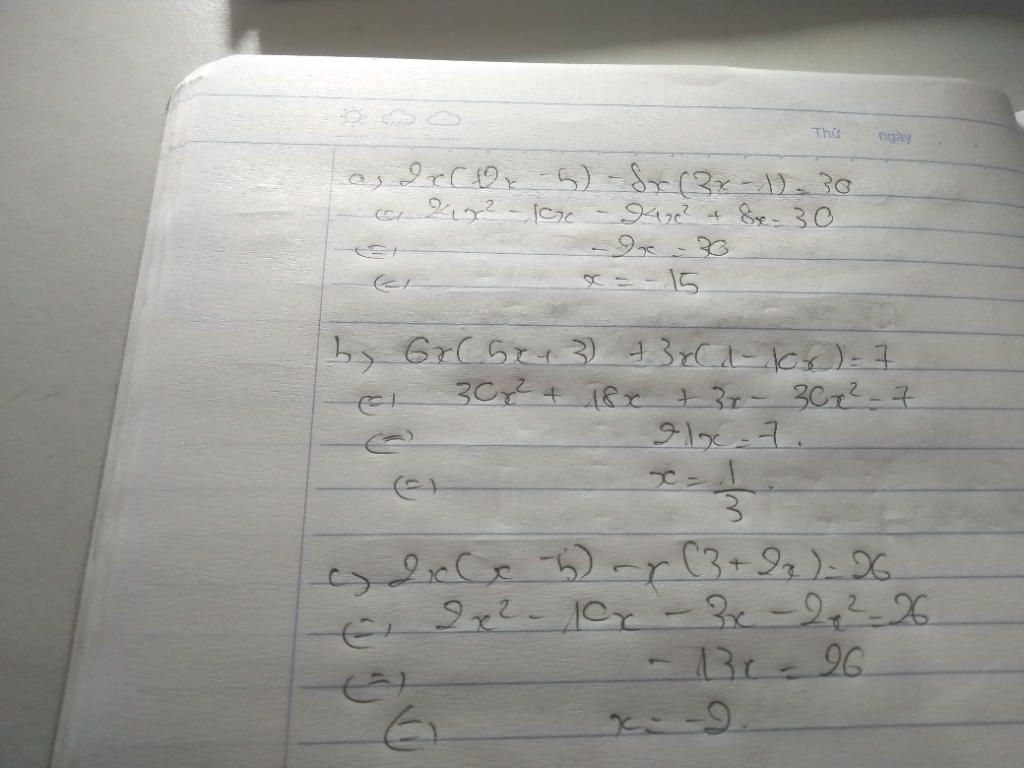 Thứ ngày
a, 2x(12x - 5) - 8x(3x - 1) = 30
<=> 24x² - 10x - 24x² + 8x = 30
<=> -2x = 30
<=> x = -15
b, 6x(5x + 3) + 3x(1 - 10x) = 7
<=> 30x² + 18x + 3x - 30x² = 7
<=> 21x = 7.
<=> x = 1/3.
c, 2x(x - 5) - x(3 + 2x) = 26
<=> 2x² - 10x - 3x - 2x² = 26
<=> -13x = 26
<=> x = -2.